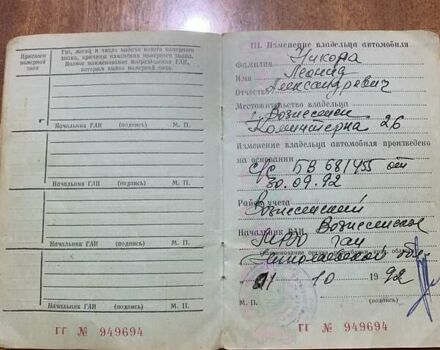 Присвоен номерной знак
Где, месяц и число выдачи нового номерного знака, причина изменения номерного знака. Полное наименование подразделения ГАИ, которым выдан номерной знак.
Начальник ГАИ (подпись) М. П.
Начальник ГАИ (подпись) М. П.
Начальник ГАИ (подпись) М. П.
Начальник ГАИ (подпись) М. П.
ГГ № 949694
III. Изменение владельца автомобиля
Фамилия Никора
Имя Леонид
Отчество Александрович
Местожительство владельца
Вознесенск
Коминтерна 26
Изменение владельца автомобиля произведено
на основании
с/с БВ 681455 от
30.09.92
Район учета
Вознесенский
Начальник ГАИ Вознесенское
МРЭО ГАИ
Николаевской обл.
10 1992
М. П. (подпись)
ГГ № 949694